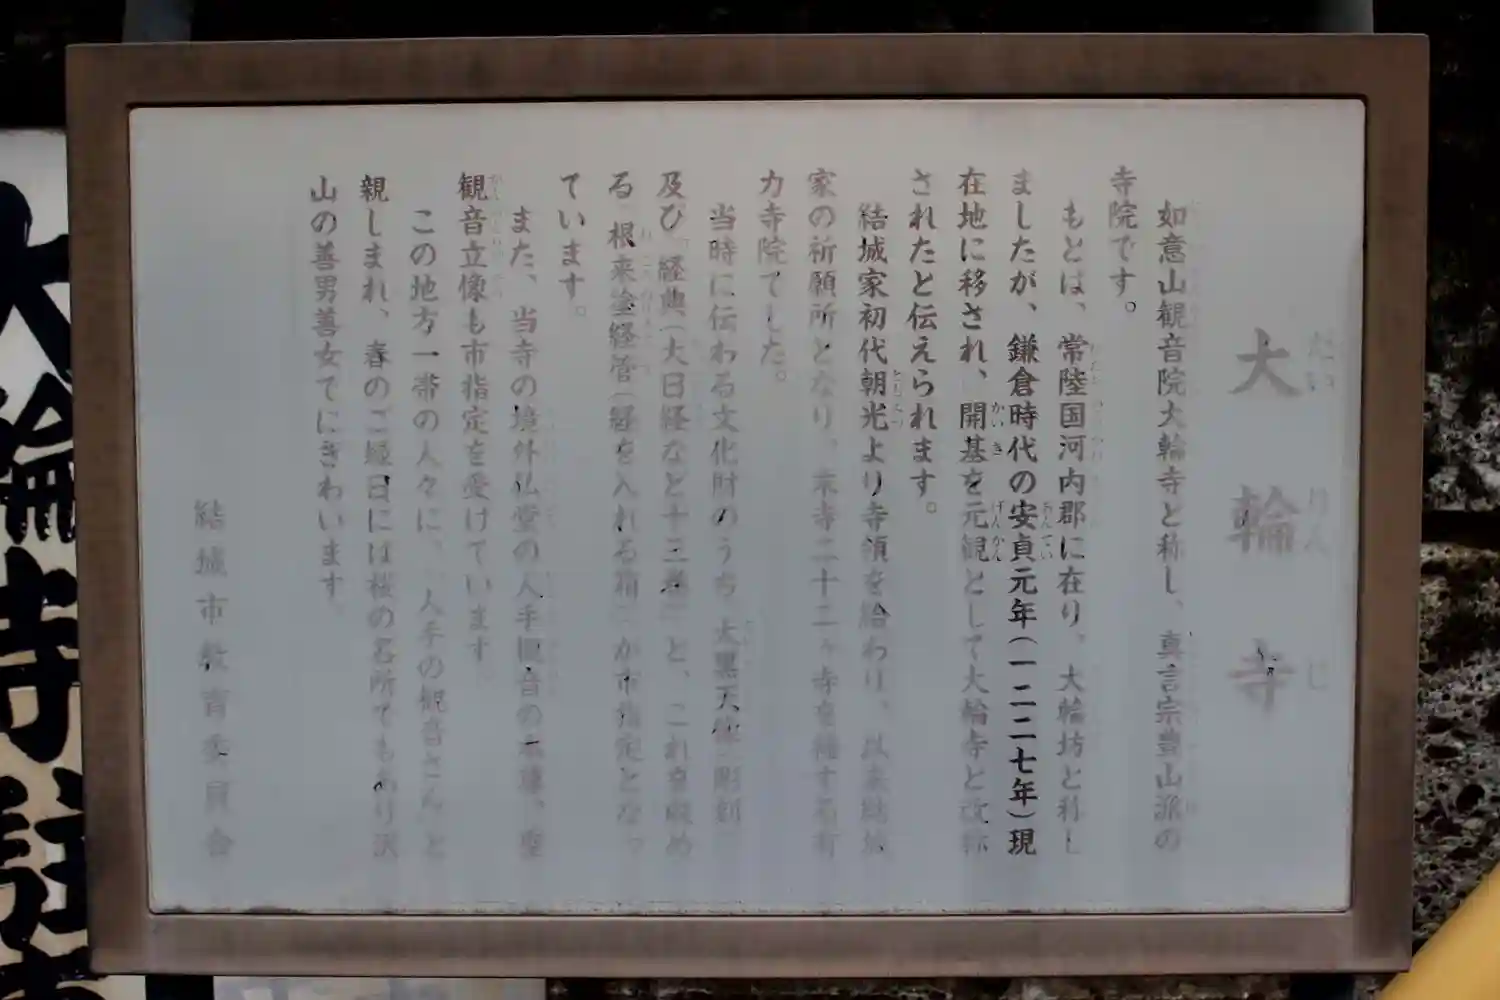 大輪寺
如意山観音院大輪寺と称し、真言宗豊山派の
寺院です。
もとは、常陸国河内郡に在り、大輪坊と称し
ましたが、鎌倉時代の安貞元年(一二二七年)現
在地に移され、開基を元観として大輪寺と改称
されたと伝えられます。
結城家初代朝光より寺領を給わり、以来結城
家の祈願所となり、末寺二十二ヶ寺を擁する有
力寺院でした。
当時に伝わる文化財のうち、大黒天像(彫刻)
及び「経典(大日経など十三巻)」と、これを収め
る「根来塗経管(経を入れる箱)」が市指定となっ
ています。
また、当寺の境外仏堂の人手観音の本尊、聖
観音立像も市指定を受けています。
この地方一帯の人々に、「人手の観音さん」と
親しまれ、春のご縁日には桜の名所でもあり沢
山の善男善女でにぎわいます。
結城市教育委員会
大輪寺駐